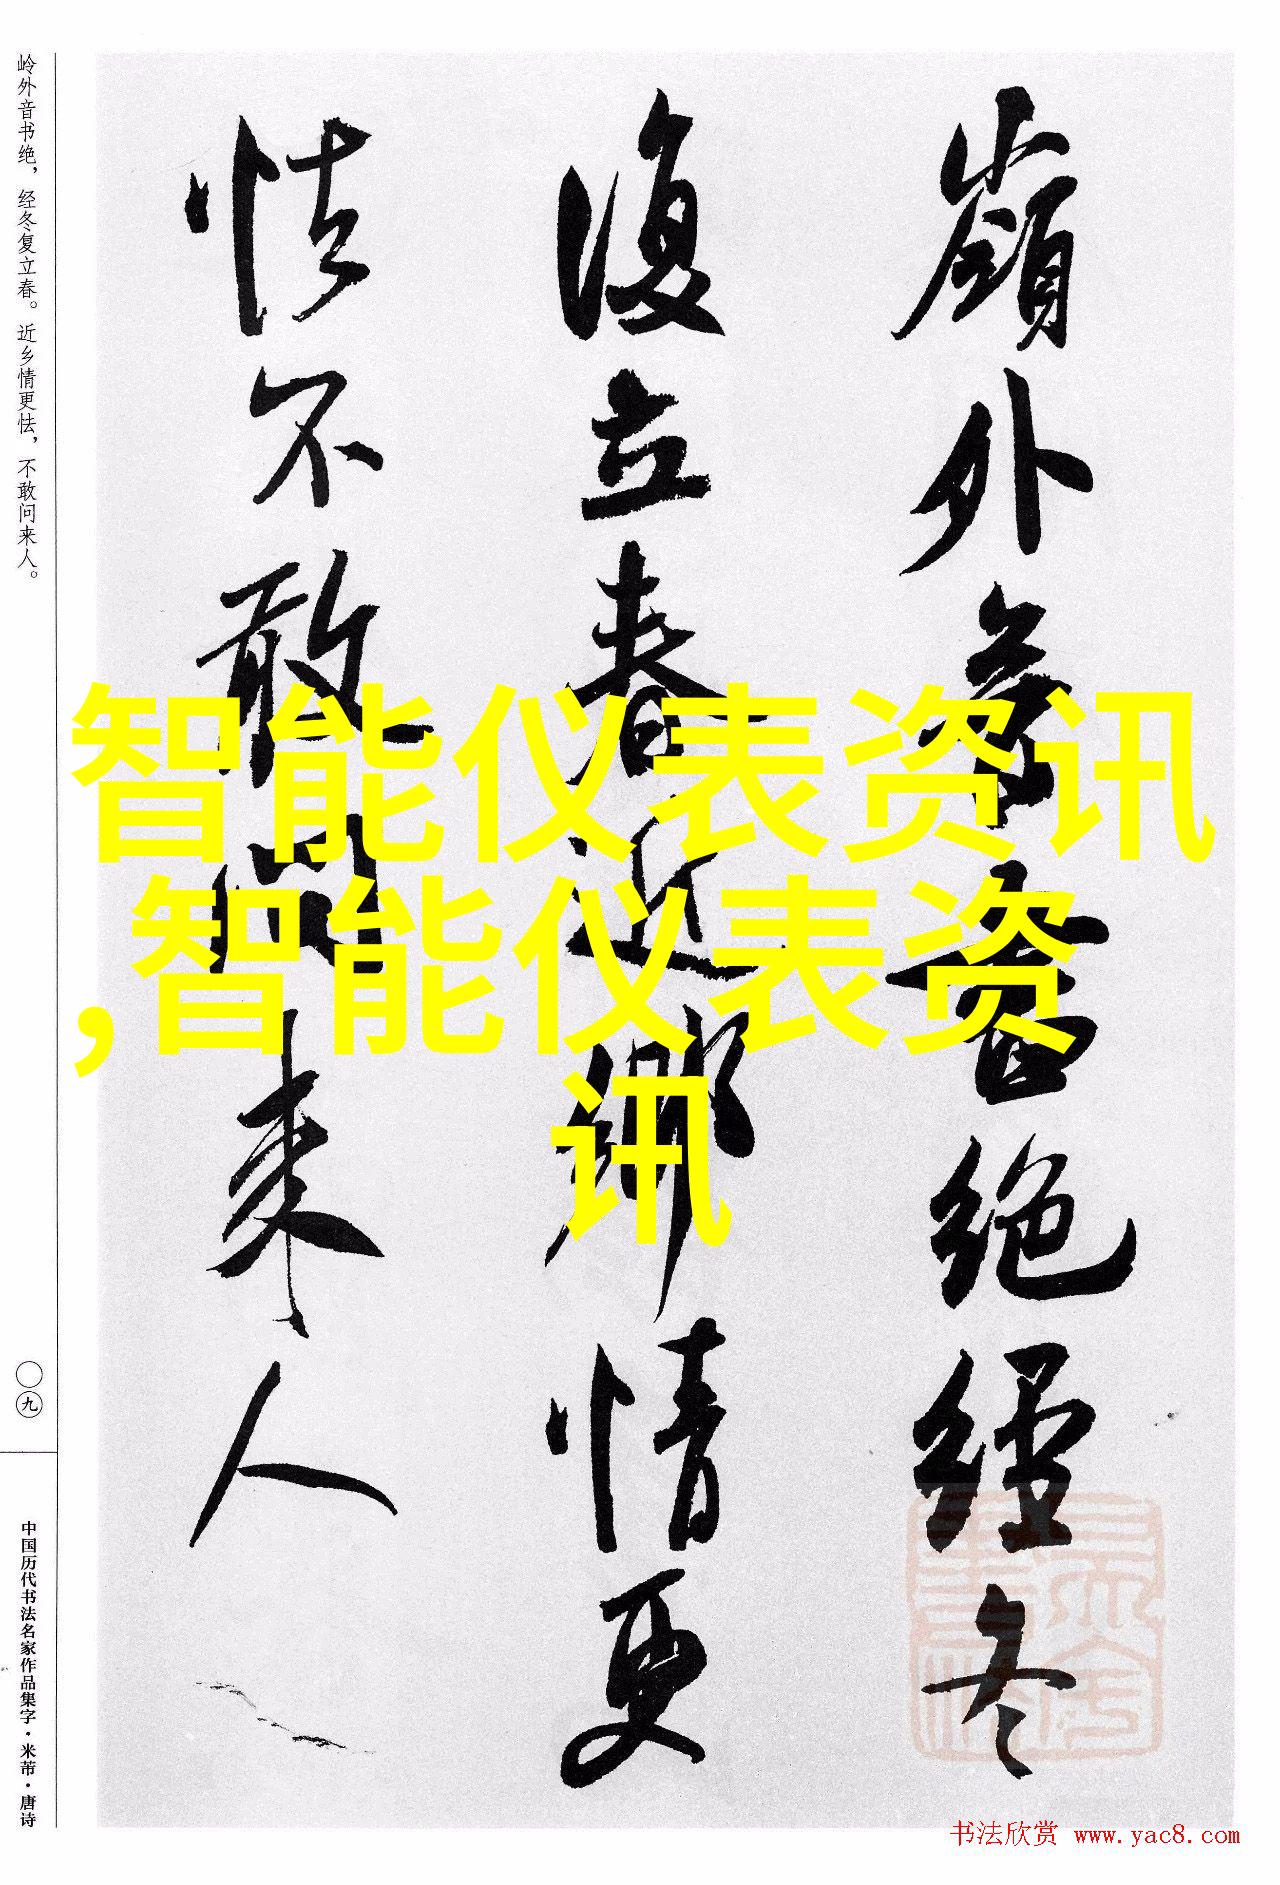 岭外音书绝，经冬复立春。近乡情更怯，不敢问来人。
〇九
中国历代书法名家作品集字·米芾·唐诗
嶺外音書絕經冬
復立春近鄉情更
怯不敢問來人
智能仪表资讯
,智能仪表资
讯
书法欣赏 www.yac8.com